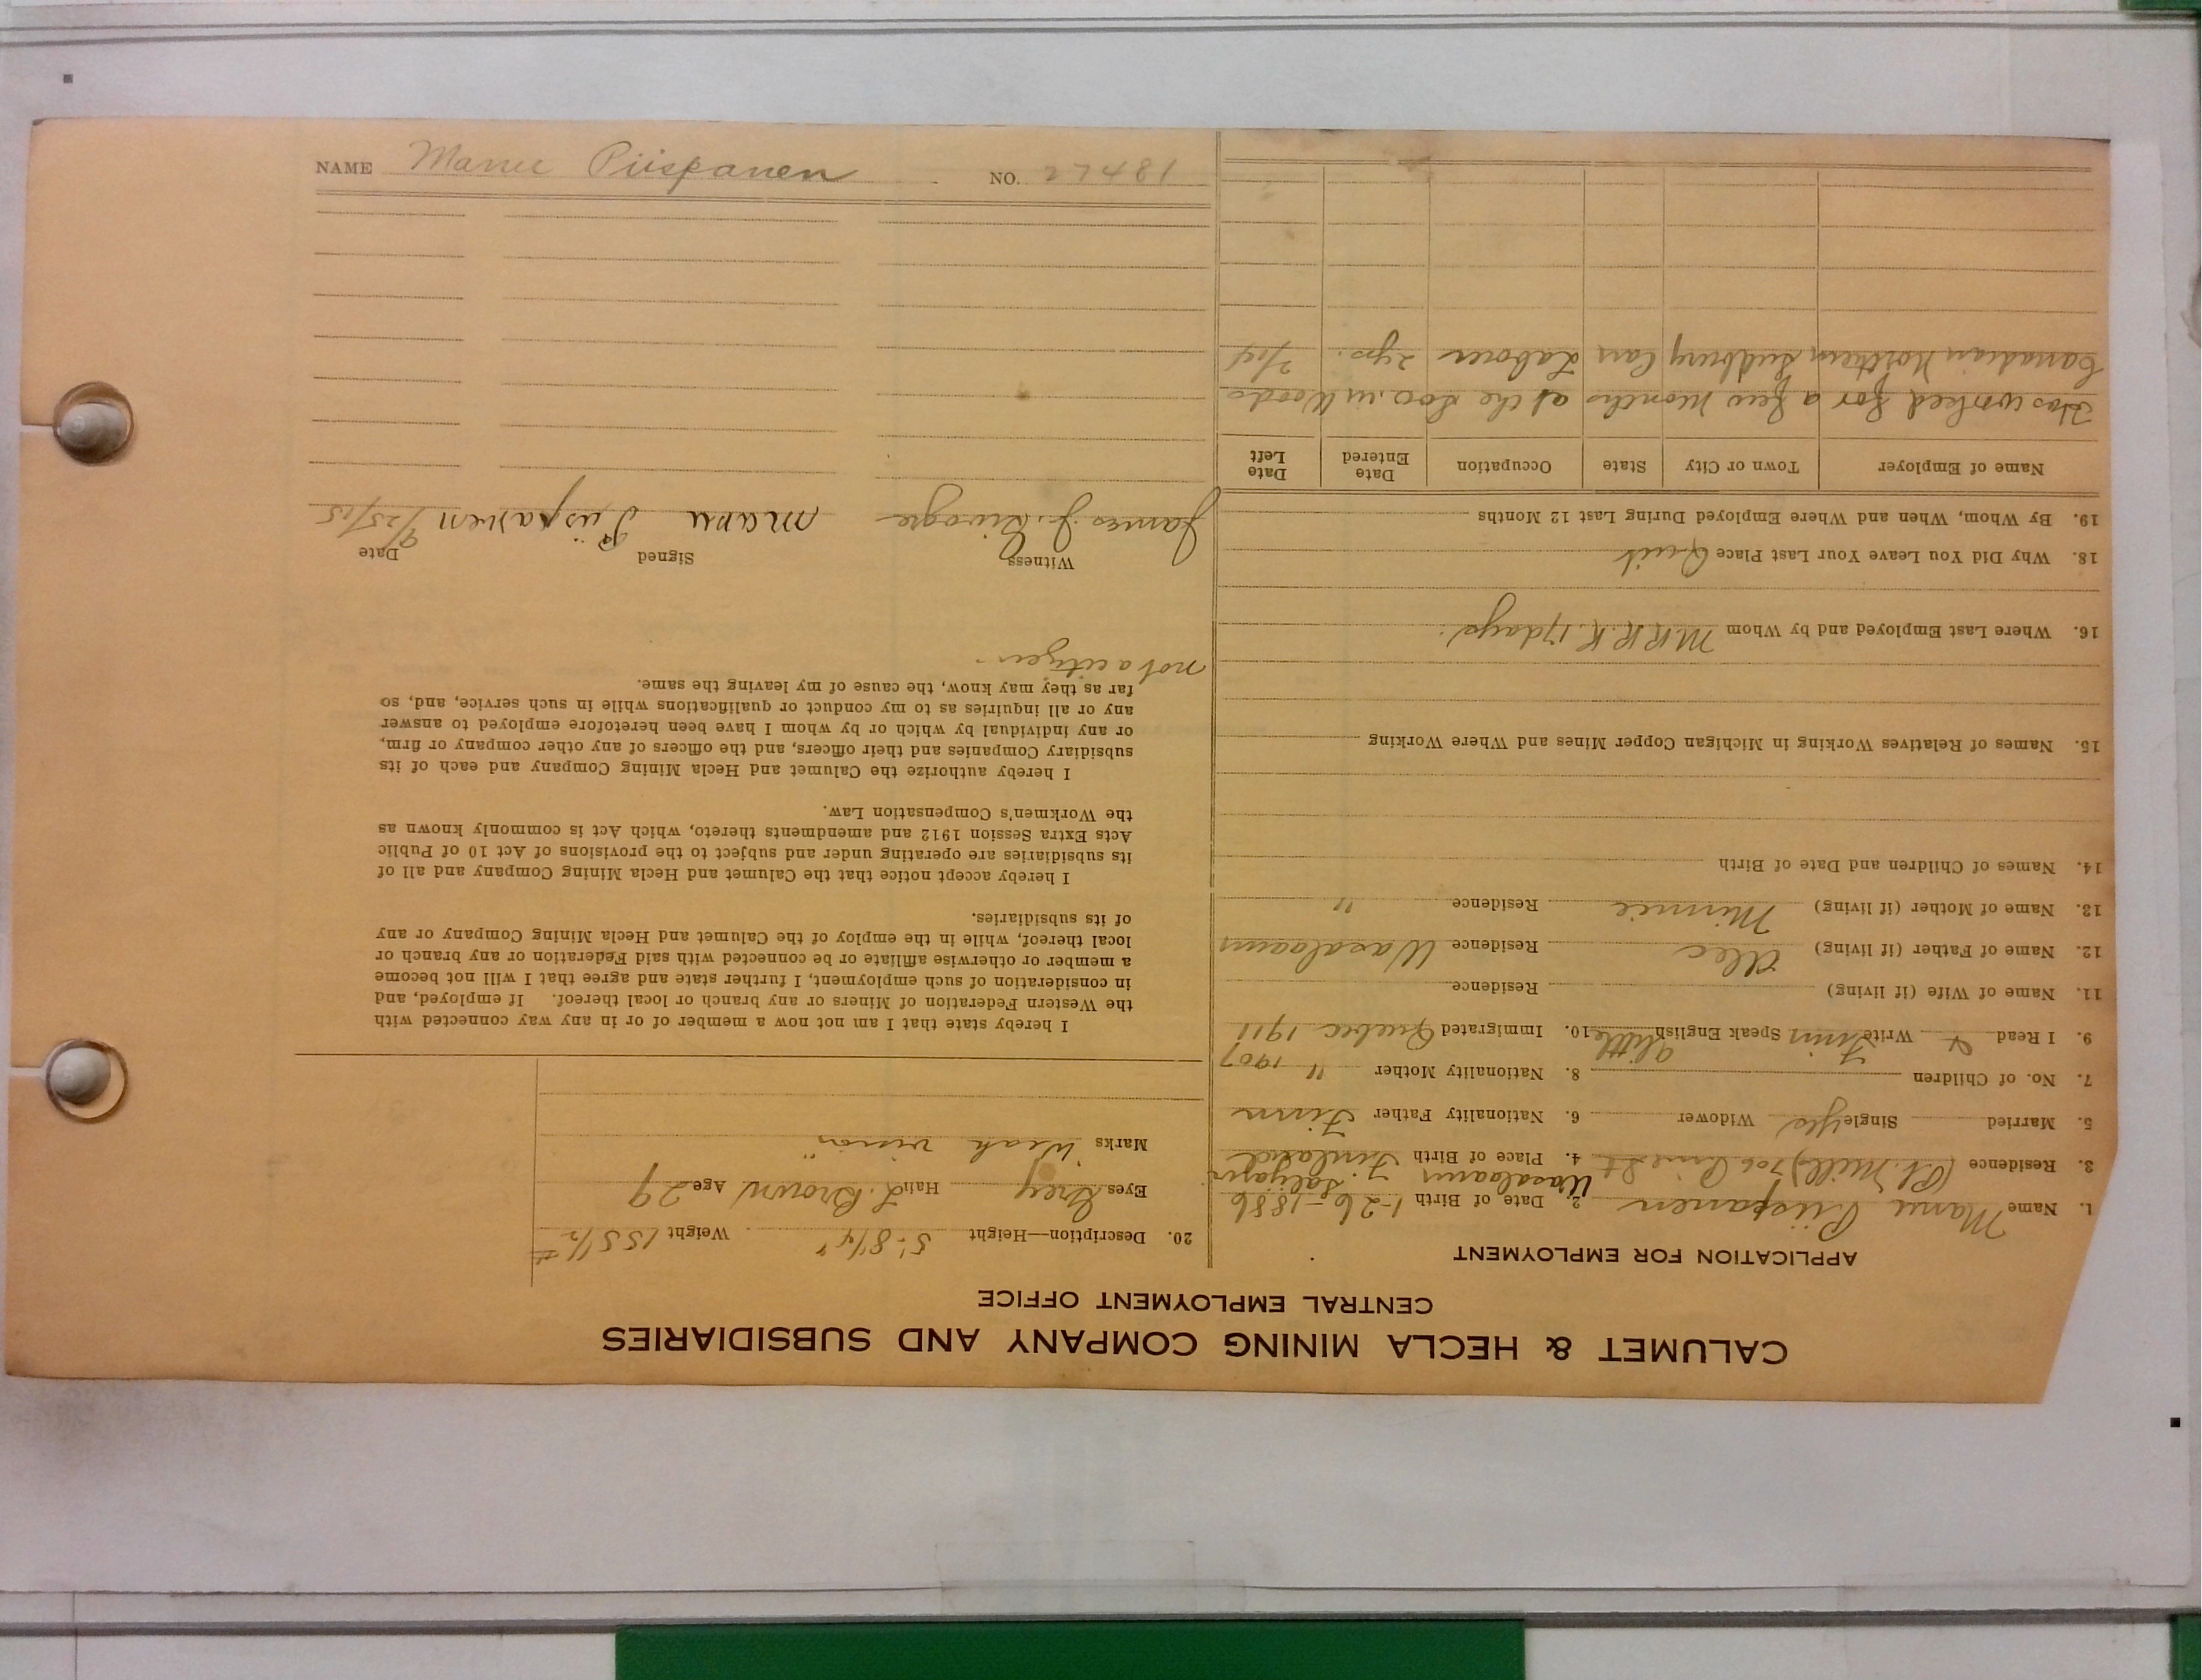 CALUMET & HECLA MINING COMPANY AND SUBSIDIARIES
CENTRAL EMPLOYMENT OFFICE
APPLICATION FOR EMPLOYMENT
1. Name Manu Piispanen 2. Date of Birth 1-26-1886
Wasalaauni
3. Residence (Pt. Mills) 706 Pine St 4. Place of Birth Finland
5. Married Single Yes Widower 6. Nationality Father Finn
7. No. of Children 8. Nationality Mother " 1907
9. I Read & Write Finn Speak English little 10. Immigrated Quebec 1911
11. Name of Wife (if living) Residence
12. Name of Father (if living) Alec Residence Wasalaauni
13. Name of Mother (if living) Minnie Residence "
14. Names of Children and Date of Birth
15. Names of Relatives Working in Michigan Copper Mines and Where Working
16. Where Last Employed and by Whom M.R.R.R. 17 days.
18. Why Did You Leave Your Last Place Quit
19. By Whom, When and Where Employed During Last 12 Months
Name of Employer Town or City State Occupation Date Entered Date Left
Has worked for a few months at the Soo. in Woods
Canadian Northern Sudbury Can Laborer 2 yrs. 2/14
20. Description—Height 5' 8 1/4" Weight 155 1/2 #
Eyes Grey Hair L. Brown Age 29
Marks "Weak vision"
I hereby state that I am not now a member of or in any way connected with
the Western Federation of Miners or any branch or local thereof. If employed, and
in consideration of such employment, I further state and agree that I will not become
a member or otherwise affiliate or be connected with said Federation or any branch or
local thereof, while in the employ of the Calumet and Hecla Mining Company or any
of its subsidiaries.
I hereby accept notice that the Calumet and Hecla Mining Company and all of
its subsidiaries are operating under and subject to the provisions of Act 10 of Public
Acts Extra Session 1912 and amendments thereto, which Act is commonly known as
the Workmen's Compensation Law.
I hereby authorize the Calumet and Hecla Mining Company and each of its
subsidiary Companies and their officers, and the officers of any other company or firm,
or any individual by which or by whom I have been heretofore employed to answer
any or all inquiries as to my conduct or qualifications while in such service, and, so
far as they may know, the cause of my leaving the same.
not a citizen.
Witness Signed Date
James J. Manu Piispanen 9/25/15
NAME Manu Piispanen NO. 27481